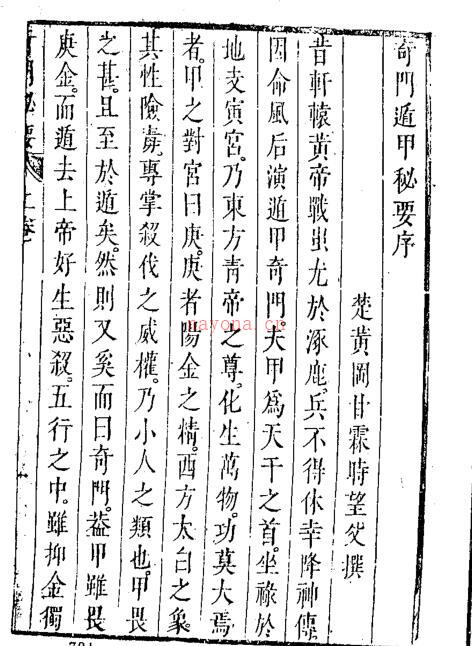 奇門遁甲秘要序
楚黃岡甘霖時望父撰
昔軒轅黃帝戰蚩尤於涿鹿。兵不得休幸降神傳
因命風后演遁甲奇門夫甲爲天干之首。坐祿於
地支寅宮。乃東方青帝之尊。化生萬物。功莫大焉
者。甲之對宮曰庚。庚者陽金之精。西方太白之象。
其性險毒。專掌殺伐之威權。乃小人之類也。甲畏
之甚。且至於遁矣。然則又奚而曰奇門。葢甲雖畏
庚金。而遁去上帝好生惡殺。五行之中。雖抑金獨
nayona.cn